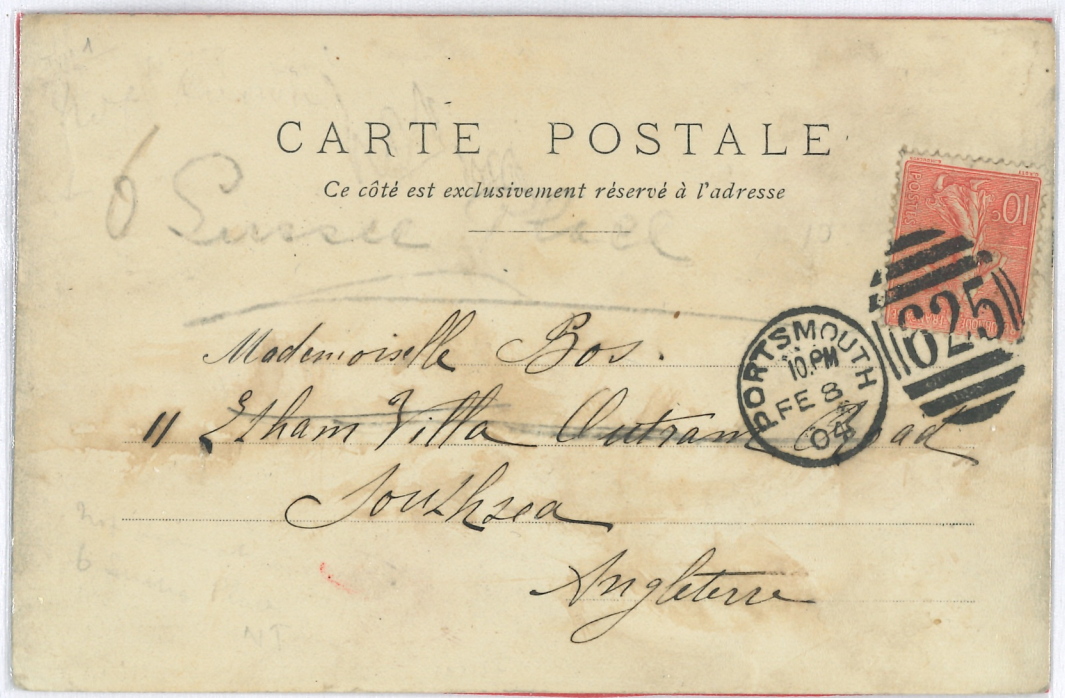 CARTE POSTALE
Ce côté est exclusivement réservé à l'adresse
6
Mademoiselle Bos.
11 Etham Villa Outram Road
Southsea
Angleterre
PORTSMOUTH
10.PM
FE 8
04
625
10c
POSTES